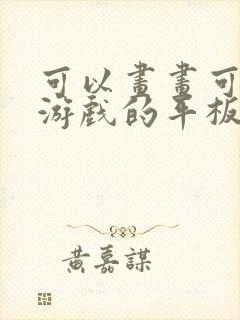 可以畫畫可
游戲的平板
黃嘉謀